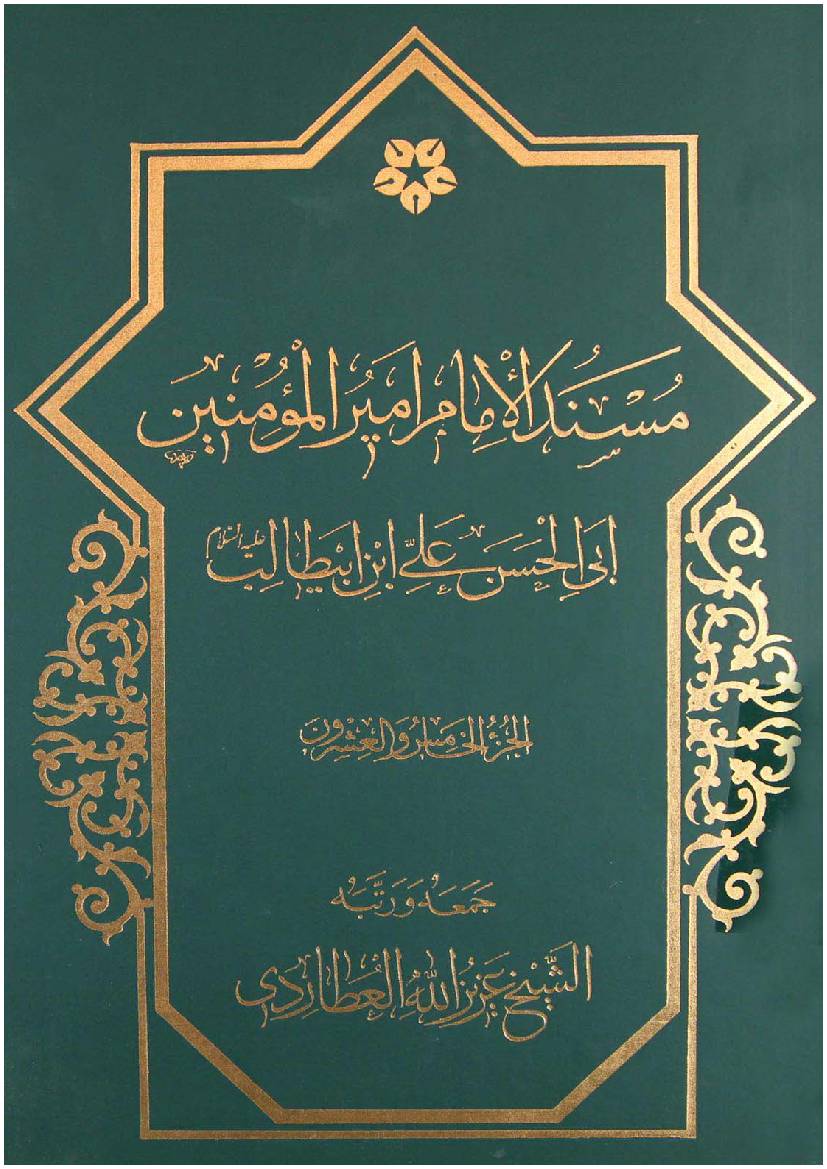 مُسْنَدُ الْإِمَامِ أَمِيرُ الْمُؤْمِنِينَ
أَبِي الْحَسَنِ عَلِيِّ ابْنِ أَبِيطَالِبٍ عليه السلام
الجزء الخامس والعشرون
جَمَعَهُ وَرَتَّبَهُ
الشَّيْخُ عَزِيزُ اللهِ الْعُطَارِدِي